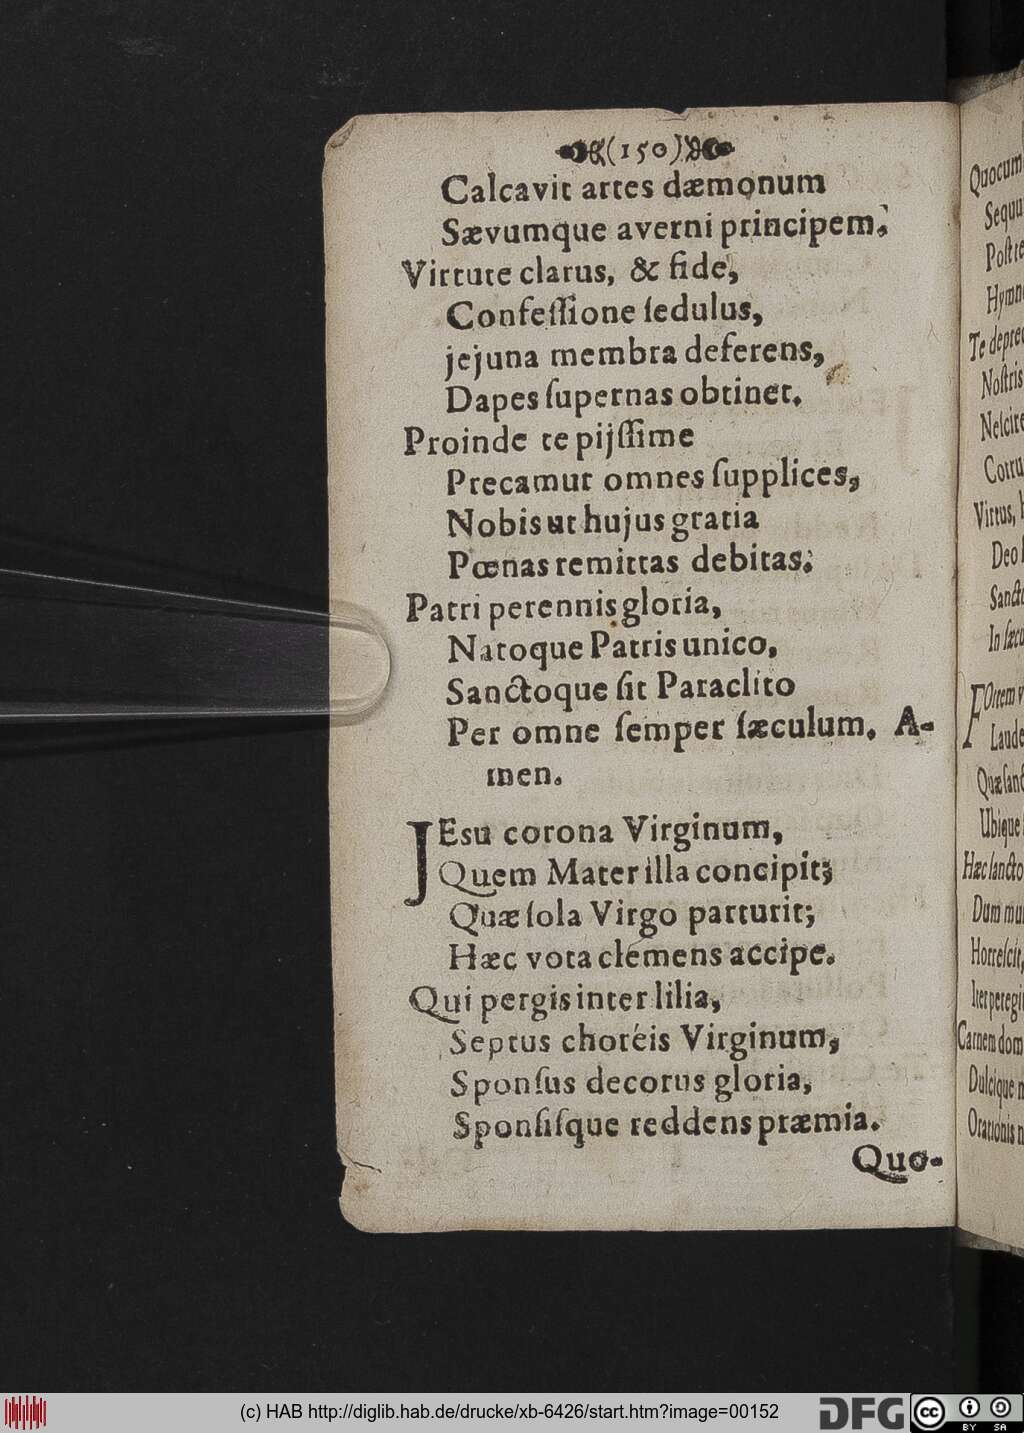 (150)
Calcavit artes dæmonum
Sævumque averni principem.
Virtute clarus, & fide,
Confeſſione ſedulus,
jejuna membra deferens,
Dapes ſupernas obtinet.
Proinde te pijſſime
Precamur omnes ſupplices,
Nobis ut hujus gratia
Pœnas remittas debitas.
Patri perennis gloria,
Natoque Patris unico,
Sanctoque ſit Paraclito
Per omne ſemper ſæculum. A-
men.
JEsu corona Virginum,
Quem Mater illa concipit;
Quæ ſola Virgo parturit;
Hæc vota clemens accipe.
Qui pergis inter lilia,
Septus choréis Virginum,
Sponſus decorus gloria,
Sponſiſque reddens præmia.
Quo-
Quocum
Sequu
Poſt te
Hymn
Te deprec
Noſtris
Neſcire
Corru
Virtus,
Deo
Sancto
In ſæcu
FOrtem v
Laude
Quæ ſanc
Ubique
Hæc ſancto
Dum mu
Horreſcit,
Iter peregi
Carnem dom
Dulcique m
Orationis n
(c) HAB http://diglib.hab.de/drucke/xb-6426/start.htm?image=00152
DFG
cc
BY SA